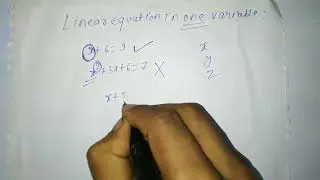 Linear equation in one variable:
x + 6 = 9 ✓ x
x² + 3x + 6 = 7 ✗ y
z
x +